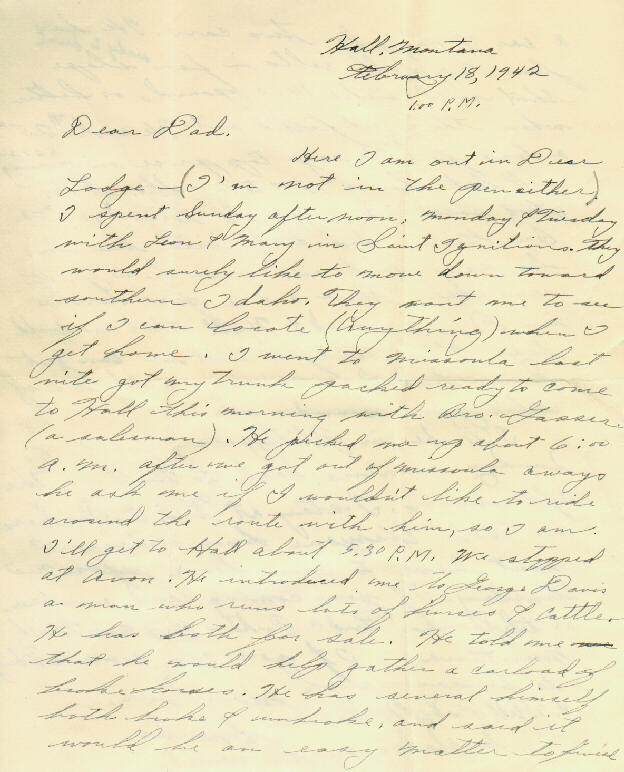 Hall, Montana
February 18, 1942
1:00 P.M.
Dear Dad.
Here I am out in Dear
Lodge - (I'm not in the pen either)
I spent Sunday afternoon, Monday & Tuesday
with Leon & Mary in Saint Ignitions. They
would surely like to move down toward
southern Idaho. They want me to see
if I can locate (Anything) when I
get home. I went to Missoula last
nite got my trunk packed ready to come
to Hall this morning with Bro. Gasser
(a salesman). He picked me up about 6:00
A.M. after we got out of Missoula aways
he ask me if I wouldn't like to ride
around the route with him, so I am.
I'll get to Hall about 5:30 P.M. We stopped
at Avon. He introduced me to George Davis
a man who runs lots of horses & cattle.
He has both for sale. He told me
that he would help gather a carload of
broke horses. He has several himself
both broke & unbroke, and said it
would be an easy matter to finish